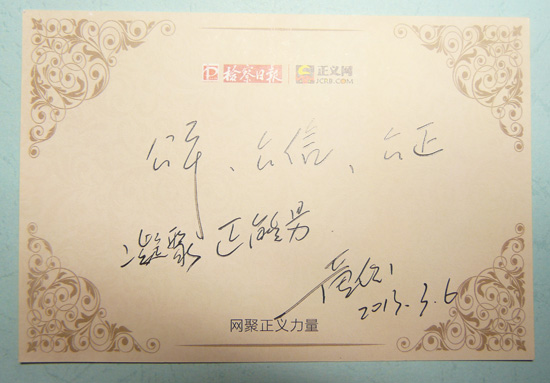 检察日报 正义网
JCRB.COM
公平、公信、公正
凝聚正能量
2013.3.6
网聚正义力量